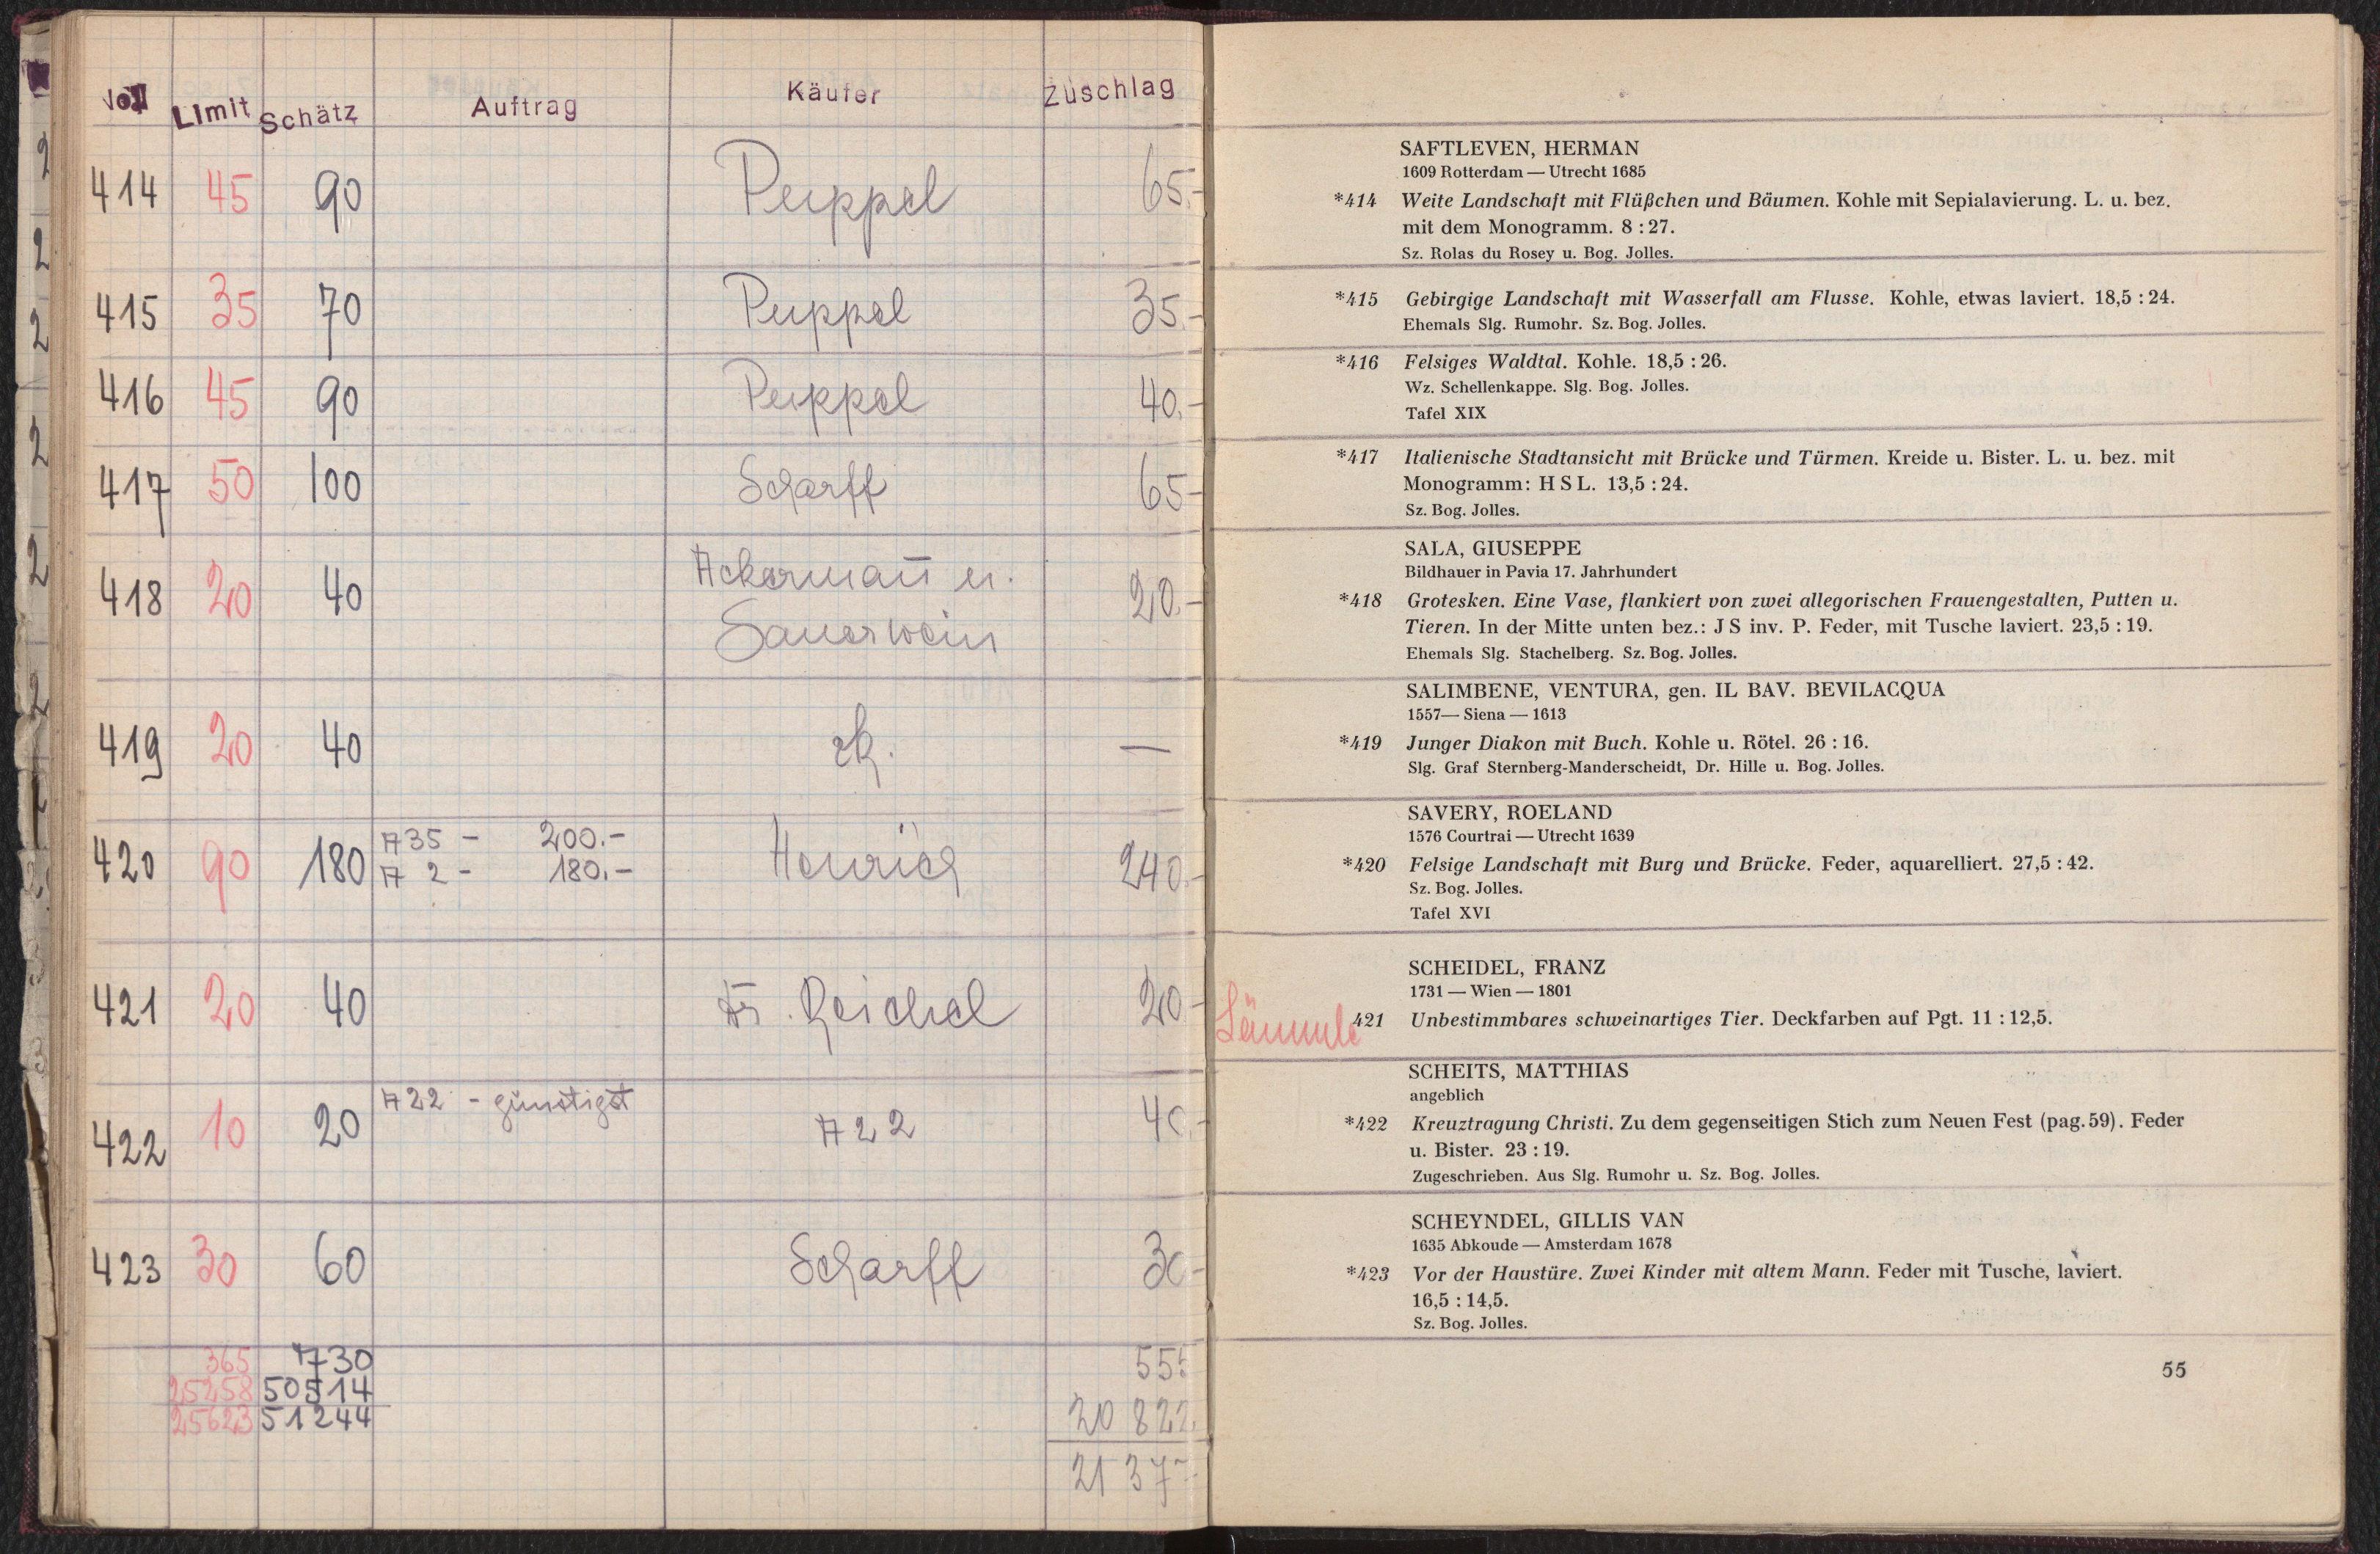 Limit Schätz Auftrag Käufer Zuschlag
414 45 90 Puppel 65.-
415 35 70 Puppel 35.-
416 45 90 Puppel 40.-
417 50 100 Scharff 65-
418 20 40 Ackermañ u. 20.-
Sauerwein
419 20 40 rk. —
420 90 180 A 35 - 200.- Henrich 240.-
A 2 - 180.-
421 20 40 Dr. Reichel 20-
422 10 20 A 22 - günstigst A 22 40.-
423 30 60 Scharff 30-
365 730 555
25258 50514 20 822
25623 51244 21 377
SAFTLEVEN, HERMAN
1609 Rotterdam — Utrecht 1685
*414 Weite Landschaft mit Flüßchen und Bäumen. Kohle mit Sepialavierung. L. u. bez.
mit dem Monogramm. 8 : 27.
Sz. Rolas du Rosey u. Bog. Jolles.
*415 Gebirgige Landschaft mit Wasserfall am Flusse. Kohle, etwas laviert. 18,5 : 24.
Ehemals Slg. Rumohr. Sz. Bog. Jolles.
*416 Felsiges Waldtal. Kohle. 18,5 : 26.
Wz. Schellenkappe. Slg. Bog. Jolles.
Tafel XIX
*417 Italienische Stadtansicht mit Brücke und Türmen. Kreide u. Bister. L. u. bez. mit
Monogramm: H S L. 13,5 : 24.
Sz. Bog. Jolles.
SALA, GIUSEPPE
Bildhauer in Pavia 17. Jahrhundert
*418 Grotesken. Eine Vase, flankiert von zwei allegorischen Frauengestalten, Putten u.
Tieren. In der Mitte unten bez.: J S inv. P. Feder, mit Tusche laviert. 23,5 : 19.
Ehemals Slg. Stachelberg. Sz. Bog. Jolles.
SALIMBENE, VENTURA, gen. IL BAV. BEVILACQUA
1557— Siena — 1613
*419 Junger Diakon mit Buch. Kohle u. Rötel. 26 : 16.
Slg. Graf Sternberg-Manderscheidt, Dr. Hille u. Bog. Jolles.
SAVERY, ROELAND
1576 Courtrai — Utrecht 1639
*420 Felsige Landschaft mit Burg und Brücke. Feder, aquarelliert. 27,5 : 42.
Sz. Bog. Jolles.
Tafel XVI
SCHEIDEL, FRANZ
1731 — Wien — 1801
Lämmle 421 Unbestimmbares schweinartiges Tier. Deckfarben auf Pgt. 11 : 12,5.
SCHEITS, MATTHIAS
angeblich
*422 Kreuztragung Christi. Zu dem gegenseitigen Stich zum Neuen Fest (pag. 59). Feder
u. Bister. 23 : 19.
Zugeschrieben. Aus Slg. Rumohr u. Sz. Bog. Jolles.
SCHEYNDEL, GILLIS VAN
1635 Abkoude — Amsterdam 1678
*423 Vor der Haustüre. Zwei Kinder mit altem Mann. Feder mit Tusche, laviert.
16,5 : 14,5.
Sz. Bog. Jolles.
55